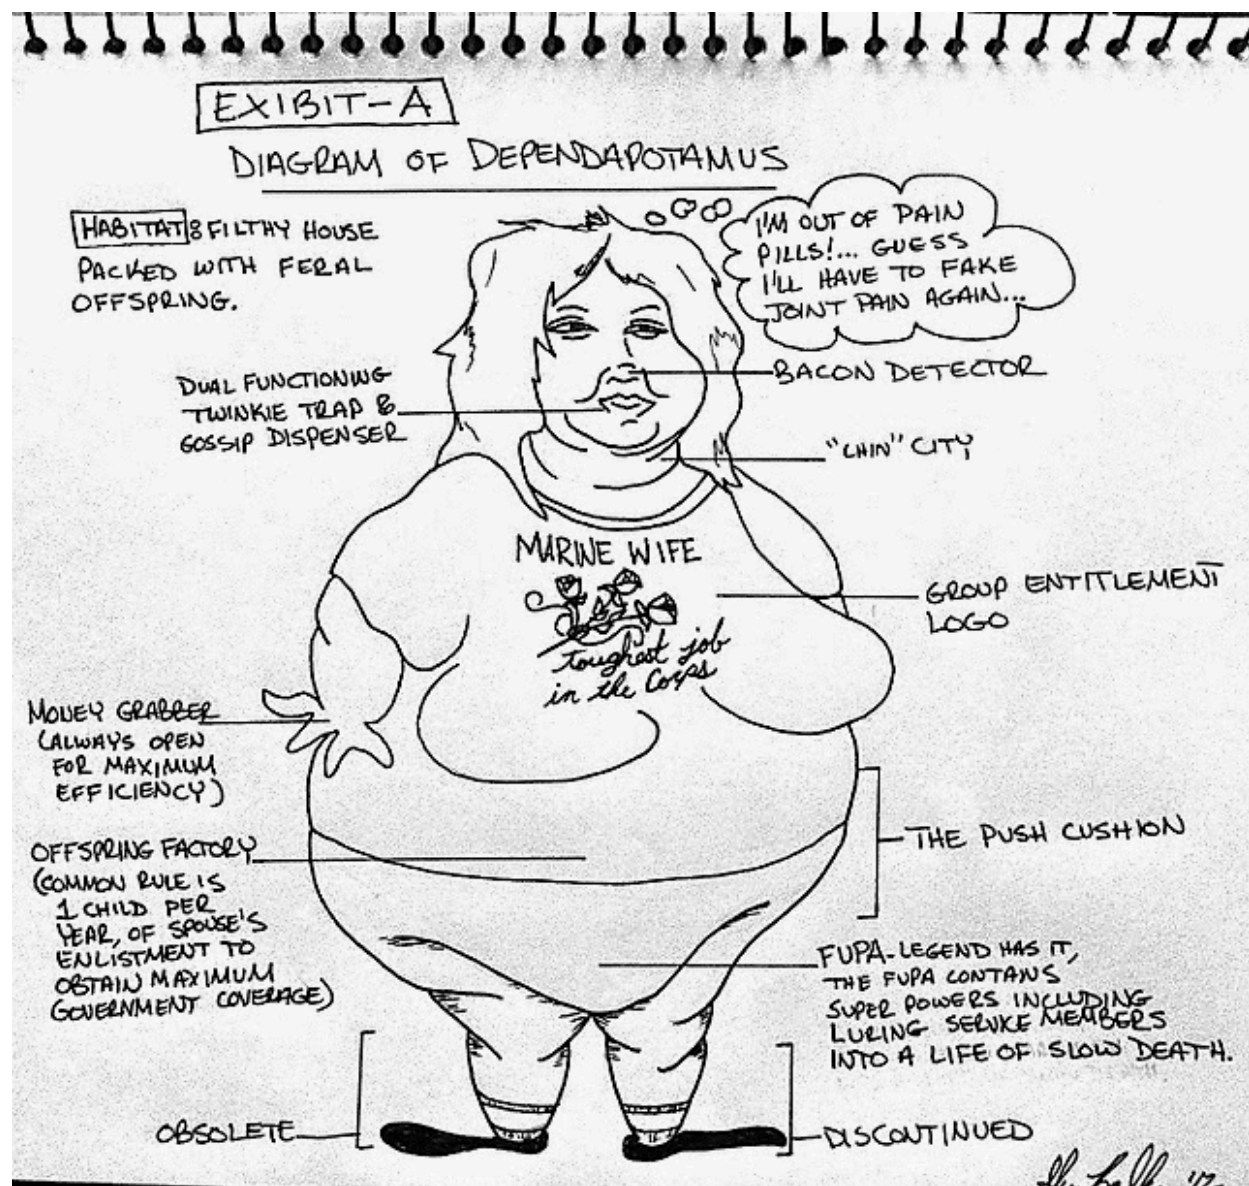 EXIBIT-A
DIAGRAM OF DEPENDAPOTAMUS
HABITAT: FILTHY HOUSE
PACKED WITH FERAL
OFFSPRING.
I'M OUT OF PAIN
PILLS!... GUESS
I'LL HAVE TO FAKE
JOINT PAIN AGAIN...
BACON DETECTOR
DUAL FUNCTIONING
TWINKIE TRAP &
GOSSIP DISPENSER
"CHIN" CITY
MARINE WIFE
toughest job
in the Corps
GROUP ENTITLEMENT
LOGO
MONEY GRABBER
(ALWAYS OPEN
FOR MAXIMUM
EFFICIENCY)
THE PUSH CUSHION
OFFSPRING FACTORY
(COMMON RULE IS
1 CHILD PER
YEAR, OF SPOUSE'S
ENLISTMENT TO
OBTAIN MAXIMUM
GOVERNMENT COVERAGE)
FUPA-LEGEND HAS IT,
THE FUPA CONTAINS
SUPER POWERS INCLUDING
LURING SERVICE MEMBERS
INTO A LIFE OF SLOW DEATH.
OBSOLETE
DISCONTINUED